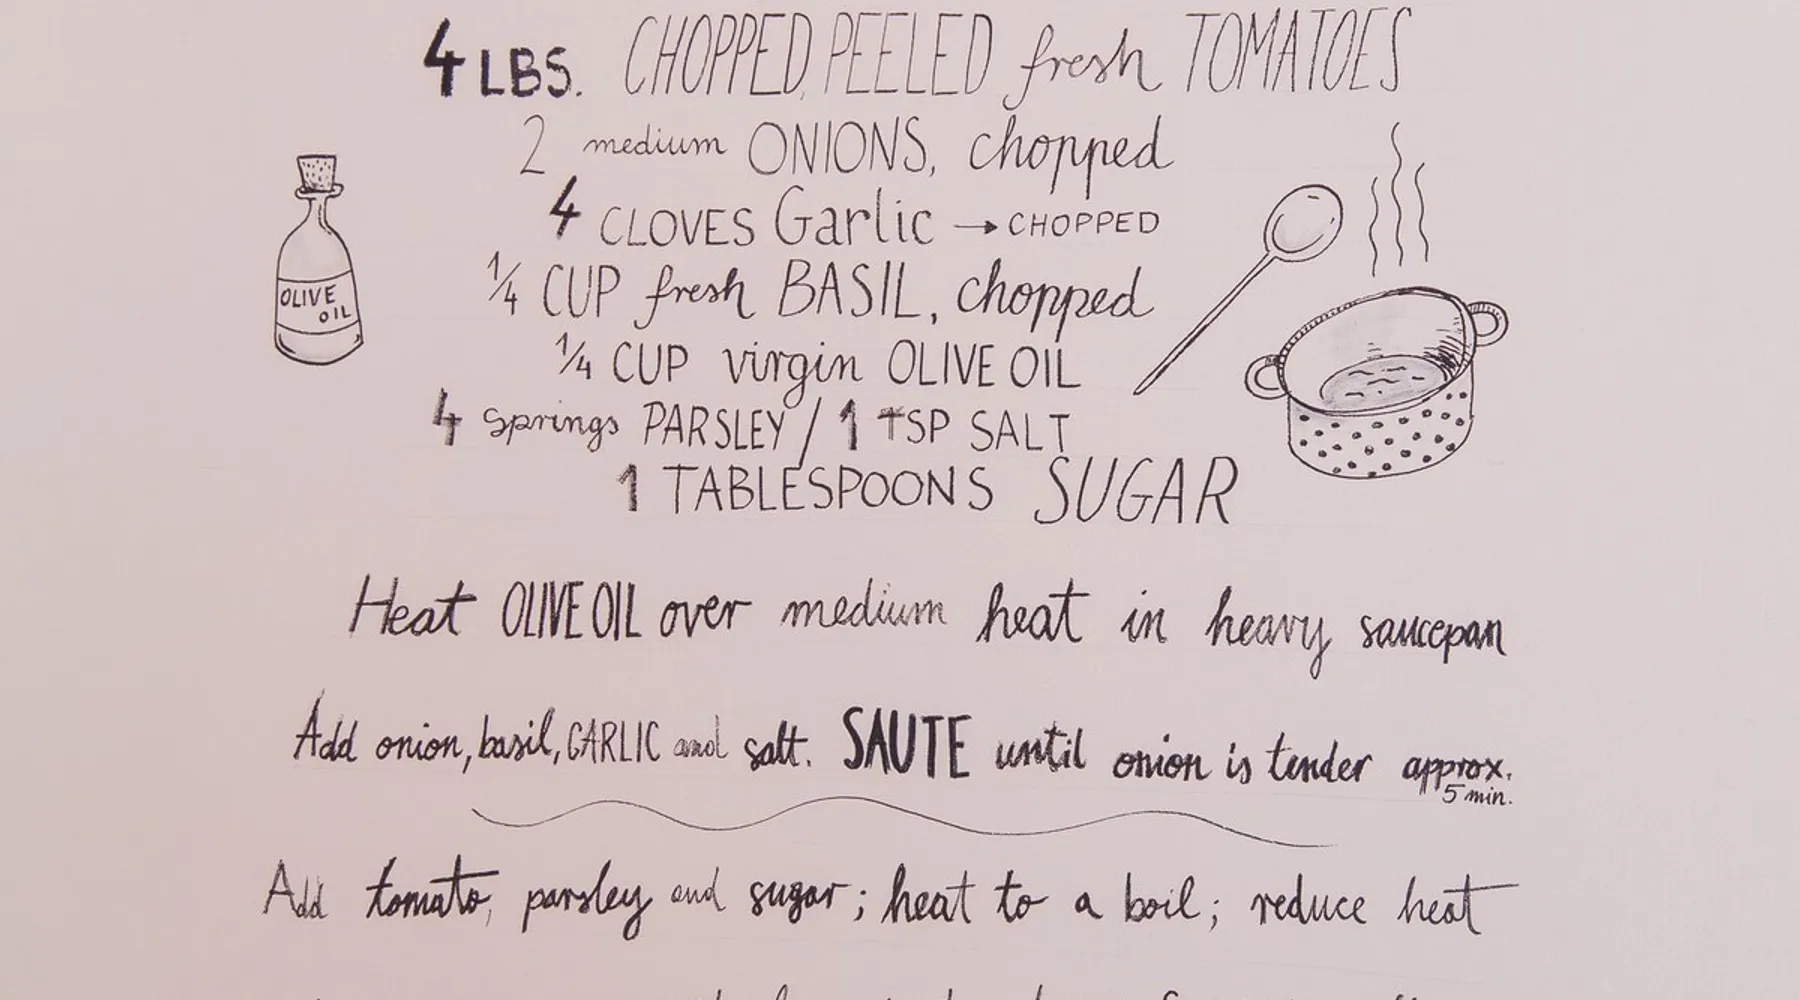 4 LBS. CHOPPED, PEELED fresh TOMATOES
2 medium ONIONS, chopped
4 CLOVES Garlic → CHOPPED
1/4 CUP fresh BASIL, chopped
1/4 CUP virgin OLIVE OIL
4 Springs PARSLEY / 1 TSP SALT
1 TABLESPOONS SUGAR
OLIVE
OIL
Heat OLIVE OIL over medium heat in heavy saucepan
Add onion, basil, GARLIC and salt. SAUTE until onion is tender approx.
5 min.
Add tomato, parsley and sugar; heat to a boil; reduce heat